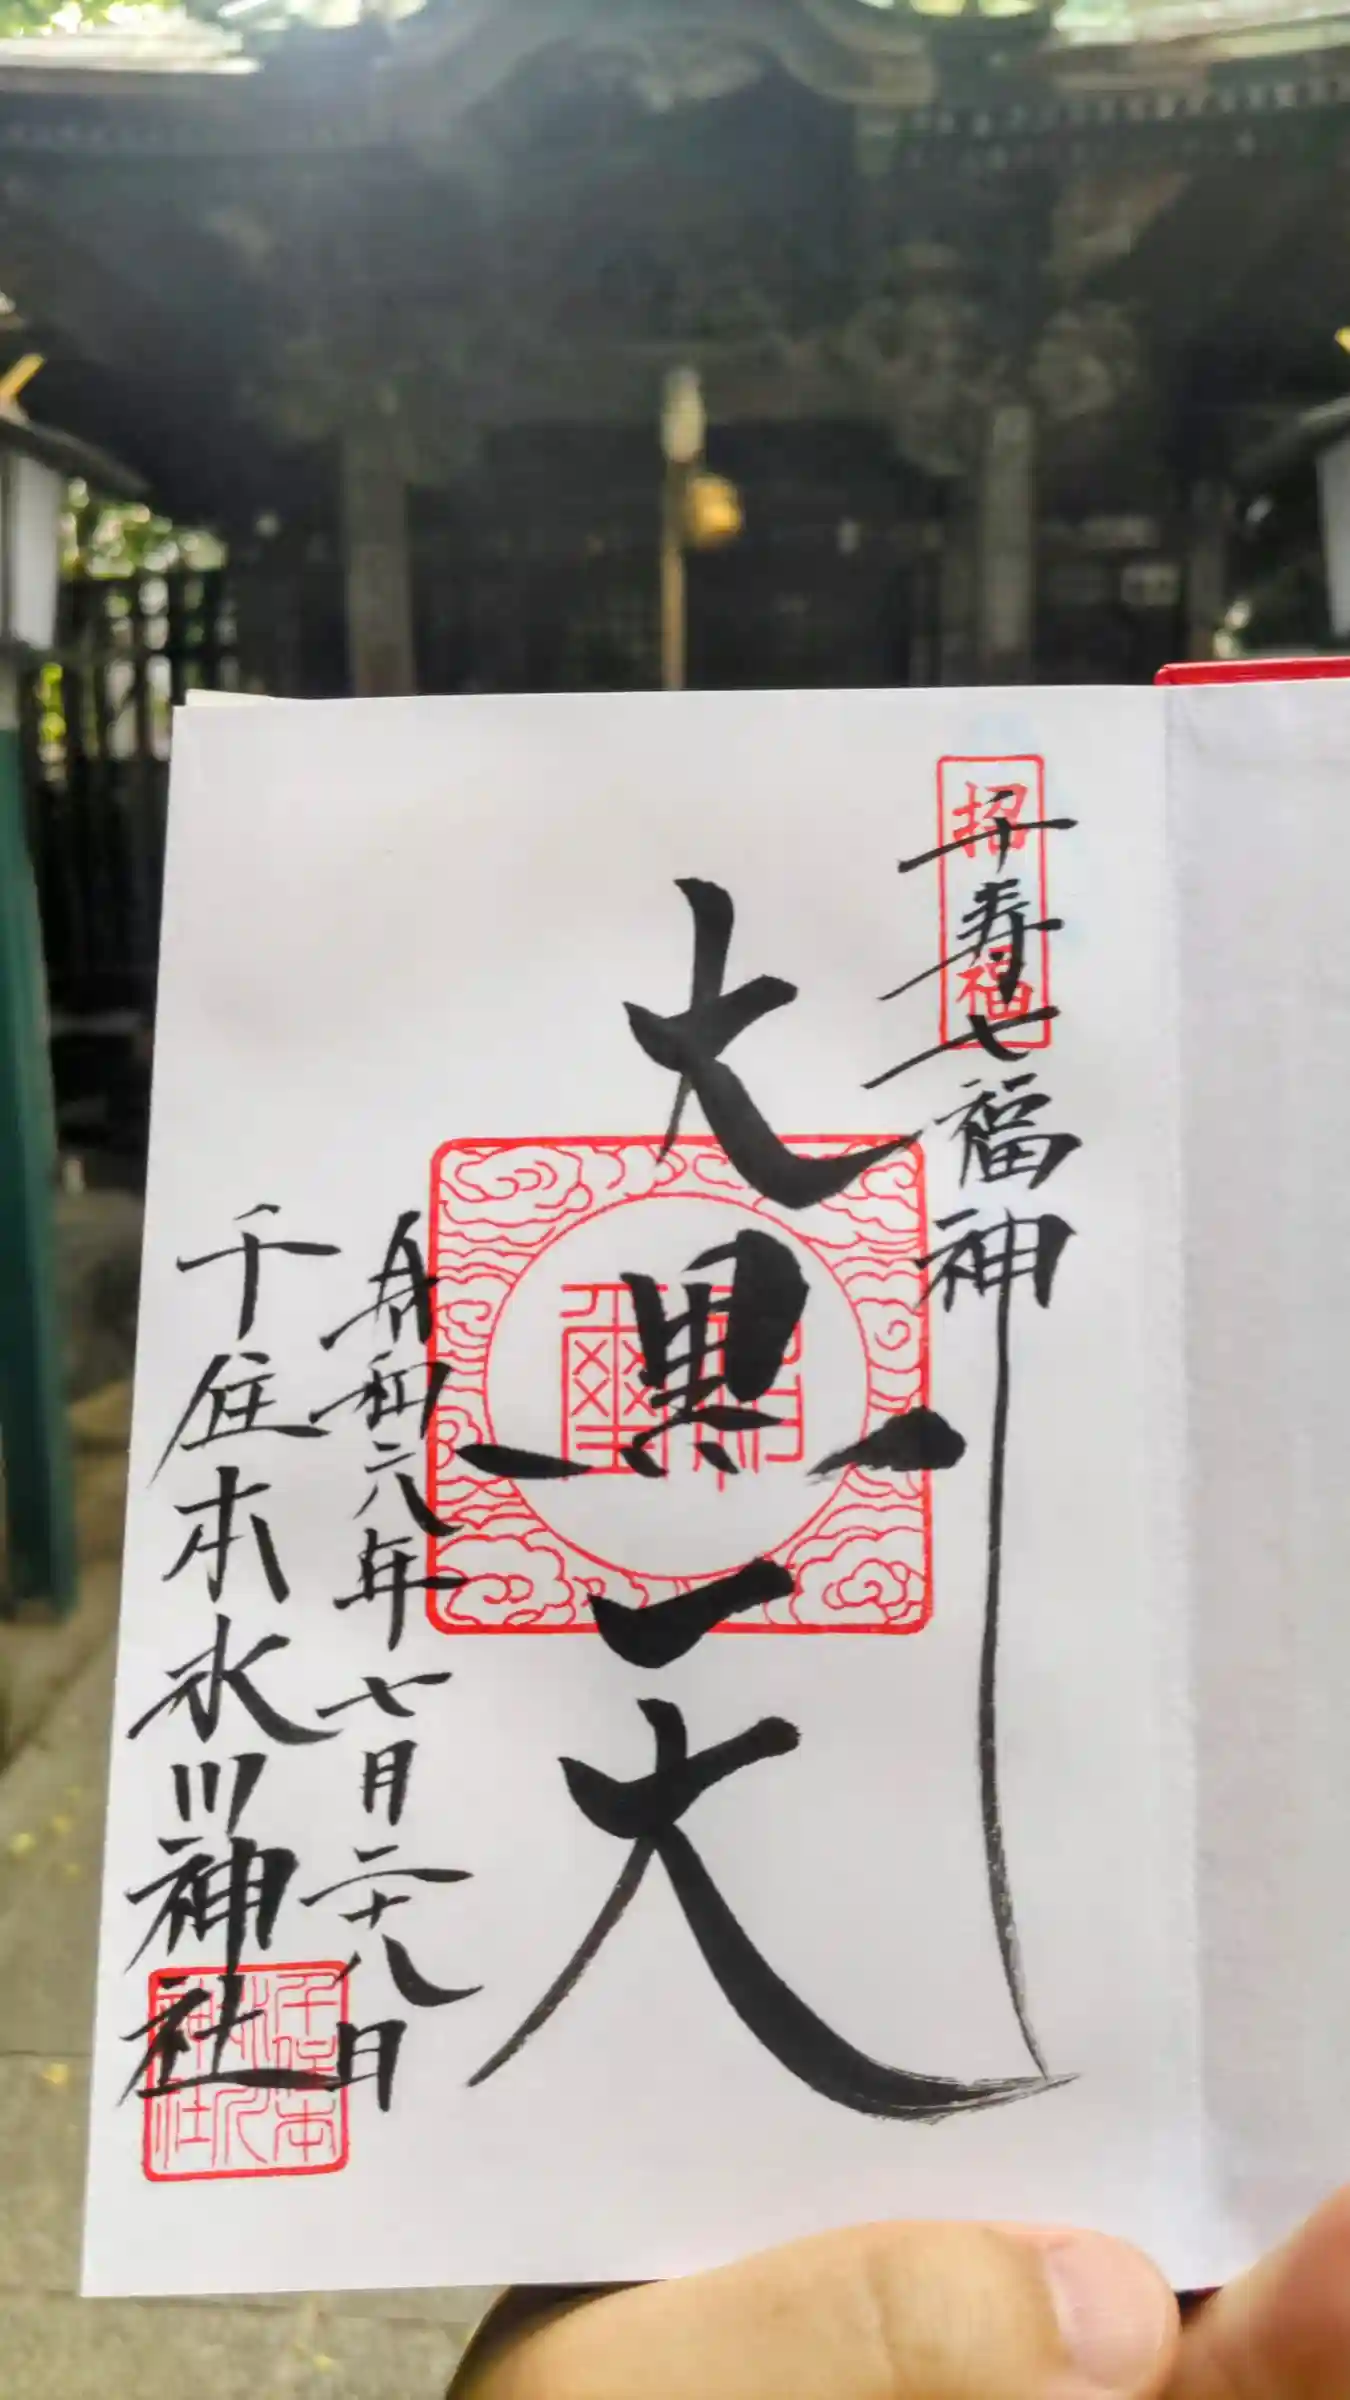 千寿七福神
招福
大黒天
令和六年七月二十八日
千住本氷川神社
千住本氷川神社